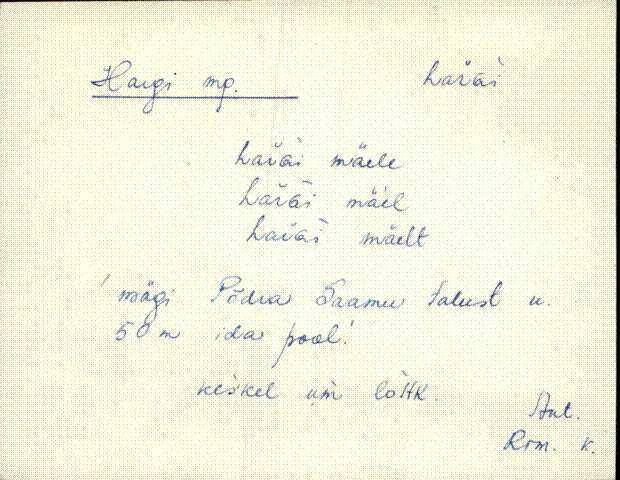 Hargi mg. haŕǵi
haŕǵi mäele
haŕǵi mäel
haŕǵi mäelt
'mägi Põdra Saamu talust u.
50 m ida pool.'
keskel um lõhk.
Ant.
Rom. k.